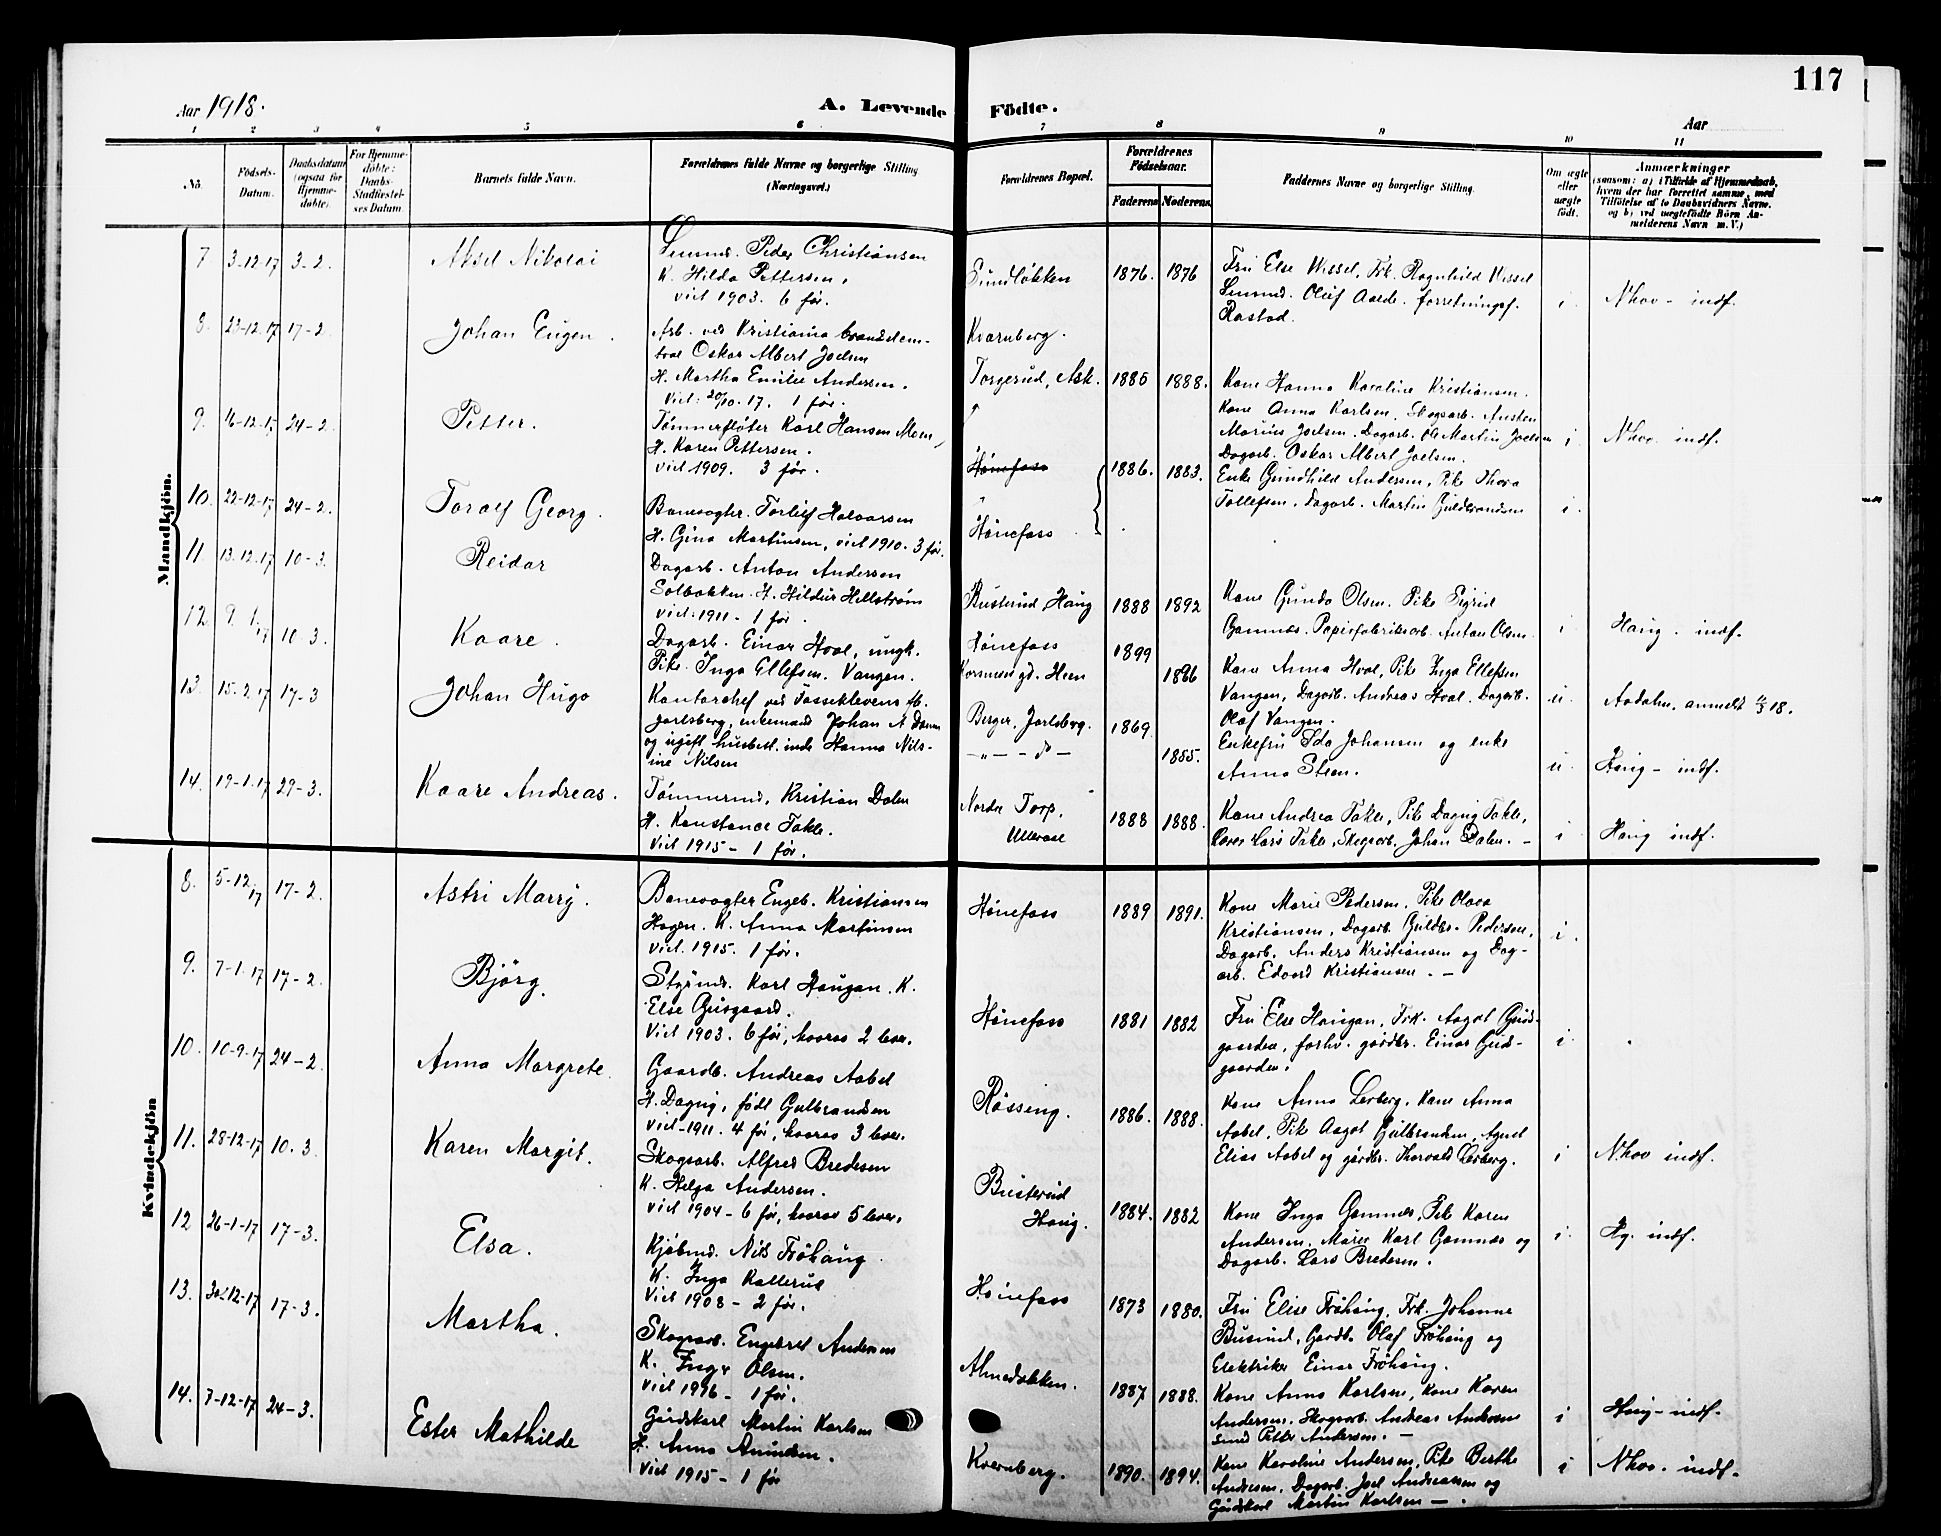 117
Aar 1918.
A. Levende Födte.
Aar
1 2 3 4 5 6 7 8 9 10 11
No.
Födsels-
Datum.
Daabsdatum
(ogsaa for
Hjemme-
döbte).
For Hjemme-
döbte:
Daabs-
Stadfæstel-
ses Datum.
Barnets fulde Navn.
Forældrenes fulde Navne og borgerlige Stilling
(Næringsvei.)
Forældrenes Bopæl.
Forældrenes
Födselsaar.
Faderens
Moderens.
Faddernes Navne og borgerlige Stilling.
Om ægte
eller
uægte
födt.
Anmærkninger
(saasom: a) i Tilfælde af Hjemmedaab,
hvem der har forrettet samme, med
Tilföielse af to Daabsvidners Navne.
og b) ved uægtefödte Börn An-
melderens Navn m. V.)
Mandkjön.
7. 3-12-17 3-2. Aksel Nikolai
Peder Christiansen
K. Hilda Pettersen.
viet 1903. 6 før.
Sundløkken 1876. 1876
Fru Else Wessel, Frk. Ragnhild Wessel
Oluf Aalde. forretningsf.
Rastad.
i. Nhov- indf.
8. 23-12-17 17-2. Johan Eugen.
Arb. ved Kristiania
Oskar Albert Joelsen
H. Martha Emilie Andersen.
Viet: 20/10. 17. 1 før.
Kvernberg.
Torgerud, Ask. 1885 1888.
Kone Hanna Karoline Kristiansen.
Kone Anna Karlsen, Skogsarb. Austen
Marius Joelsen. Dagarb. Ole Martin Joelsen
Dagarb. Oskar Albert Joelsen.
i. Nhov. indf.
9. 16-12-17 24-2. Petter.
Tømmerfløter Karl Hansen Moen
H. Karen Pettersen.
viet 1909. 3 før.
Hønefoss 1886. 1883.
Enke Gundhild Andersen, Pike Thora
Tollefsen, Dagarb. Martin Guldbrandsen
i.
10. 22-12-17 24-2. Toralf Georg.
Banevogtr. Torleif Halvorsen
H. Gina Martinsen, viet 1910. 3 før.
Hønefoss
11. 13.12.17 10-3. Reidar
Dagarb. Anton Andersen
Solbakken. H. Hildur Hellström
viet: 1911 - 1 før.
Busterud, Haug 1888 1892
Kone Gunda Olsen. Pike Sigrid
Gamnes. Papirfabrikarb. Anton Olsen
i. Haug. indf.
12. 9. 1/17 10-3. Kaare.
Dagarb. Einar Hval, ungk.
Pike. Inga Ellefsen. Vangen.
Hønefoss 1899
Hen
Kone Anna Hval, Pike Inga Ellefsen
Vangen, Dagarb. Andreas Hval. Dagarb.
Olaf Vangen.
u. Aadalen. anmeldt
13. 15-2-17 17-3 Johan Hugo
Kontorchef ved Fossekleven fb.
Jarlsberg, enkemand Johan A.
og ugift husbest.inde Hanna Nils-
ine Nilsen
Berger, Jarlsberg. 1869.
-"- - do - 1885.
Enkefru Ida Johansen og enke
Anna Steen.
u. Haug- indf.
14. 19-1-17 29-3. Kaare Andreas.
Tømmermd. Kristian Dalen
H. Konstance Takle.
Viet 1915- 1 før.
Nordre Torp,
Ullevaal 1888 1888.
Kone Andrea Takle, Pike Dagny Takle,
Lars Takle, Skogsarb. Johan Dalen. -
i Haug indf.
Kvindekjön
8. 5-12/17 17-2. Astri Marry.
Banevogter Engeb. Kristiansen
Hagen. K. Anna Martinsen
Viet. 1915. 1 før.
Hønefoss 1889 1891.
Kone Marie Pedersen, Pike Olava
Kristiansen, Dagarb. Guldbr. Pedersen,
Dagarb. Anders Kristiansen og Dag-
arb. Edvard Kristiansen. -
i.
9. 7-1-17 17-2. Bjørg.
Styrmd. Karl Haugan. K.
Else Gusgaard.
Viet 1903. 6 før, hvorav 2 lever.
Hønefoss 1881 1882
Fru Else Haugan, Frk. Aagot Guds-
gaarden, forhv. gårdbr. Einar Guds-
gaarden.
i.
10. 10-9-17 24-2. Anna Margrete.
Gaardb. Andreas Aabel
H. Dagny, født Gulbrandsen
Viet-1911. 4 før, hvorav 3 lever.
Røsseng. 1886. 1888.
Kone Anna Lerberg, Kone Anna
Aabel, Pike Aagot Gulbrandsen, Agent
Elias Aabel og gårdbr. Thorvald Lerberg.
i Nhov indf.
11. 28-12-17 10.3. Karen Margit.
Skogsarb. Alfred Bredesen
K. Helga Andersen.
viet 1904- 6 før, hvorav 5 lever.
Busterud
Haug. 1884. 1882
Kone Inga Gamnes, Pike Karen
Andersen, Murer Karl Gamnes og
Dagarb. Lars Bredesen.
i. Hg. indf.
12 26-1-17 17-3. Elsa.
Kjøbmd. Nils Frøhaug
K. Inga Kallerud
Viet 1908- 2 før.
Hønefoss 1873 1880.
Fru Elise Frøhaug, Frk. Johanne
Busund, Gardb. Olaf Frøhaug og
Elektriker Einar Frøhaug.
13. 30-12-17 17-3. Martha.
Skogsarb. Engebret Andersen
K. Inga Olsen.
Viet 1916- 1 før.
Almedokken. 1887 1888.
Kone Anna Karlsen, Kone Karen
Andersen. Skogsarb. Andreas Andersen
Petter Andersen. -
i Haug- indf.
14. 7-12-17 24-3. Ester Mathilde
Gårdskarl Martin Karlsen
H. Anna Amundsen.
Viet 1915- 1 før
Kvernberg. 1890. 1894.
Kone Karoline Andersen, Pike Berthe
Andresen, Dagarb. Joel Andreassen og
Gårdskarl Martin Karlsen -.
i Nhov. indf.